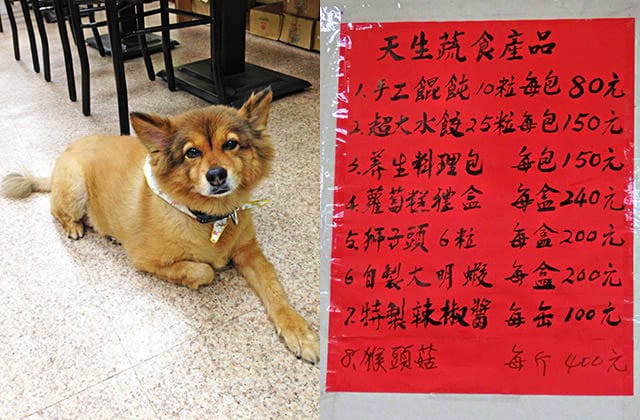 天生蔬食產品
1.手工餛飩10粒每包80元
2.超大水餃25粒每包150元
3.养生料理包 每包150元
4.蘿蔔糕禮盒 每盒240元
5.獅子頭6粒 每盒200元
6自製大明蝦 每盒200元
7.特製辣椒醬 每缶100元
8.猴頭菇 每斤400元